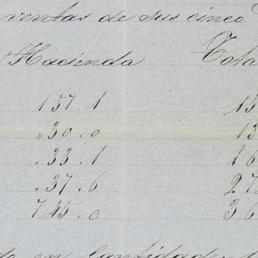 ventas de sus cinco
Hacienda Tota
157.1 15
"30.0 13
"33.1 16
"37.6 27
745.0 3.6
en cantidad